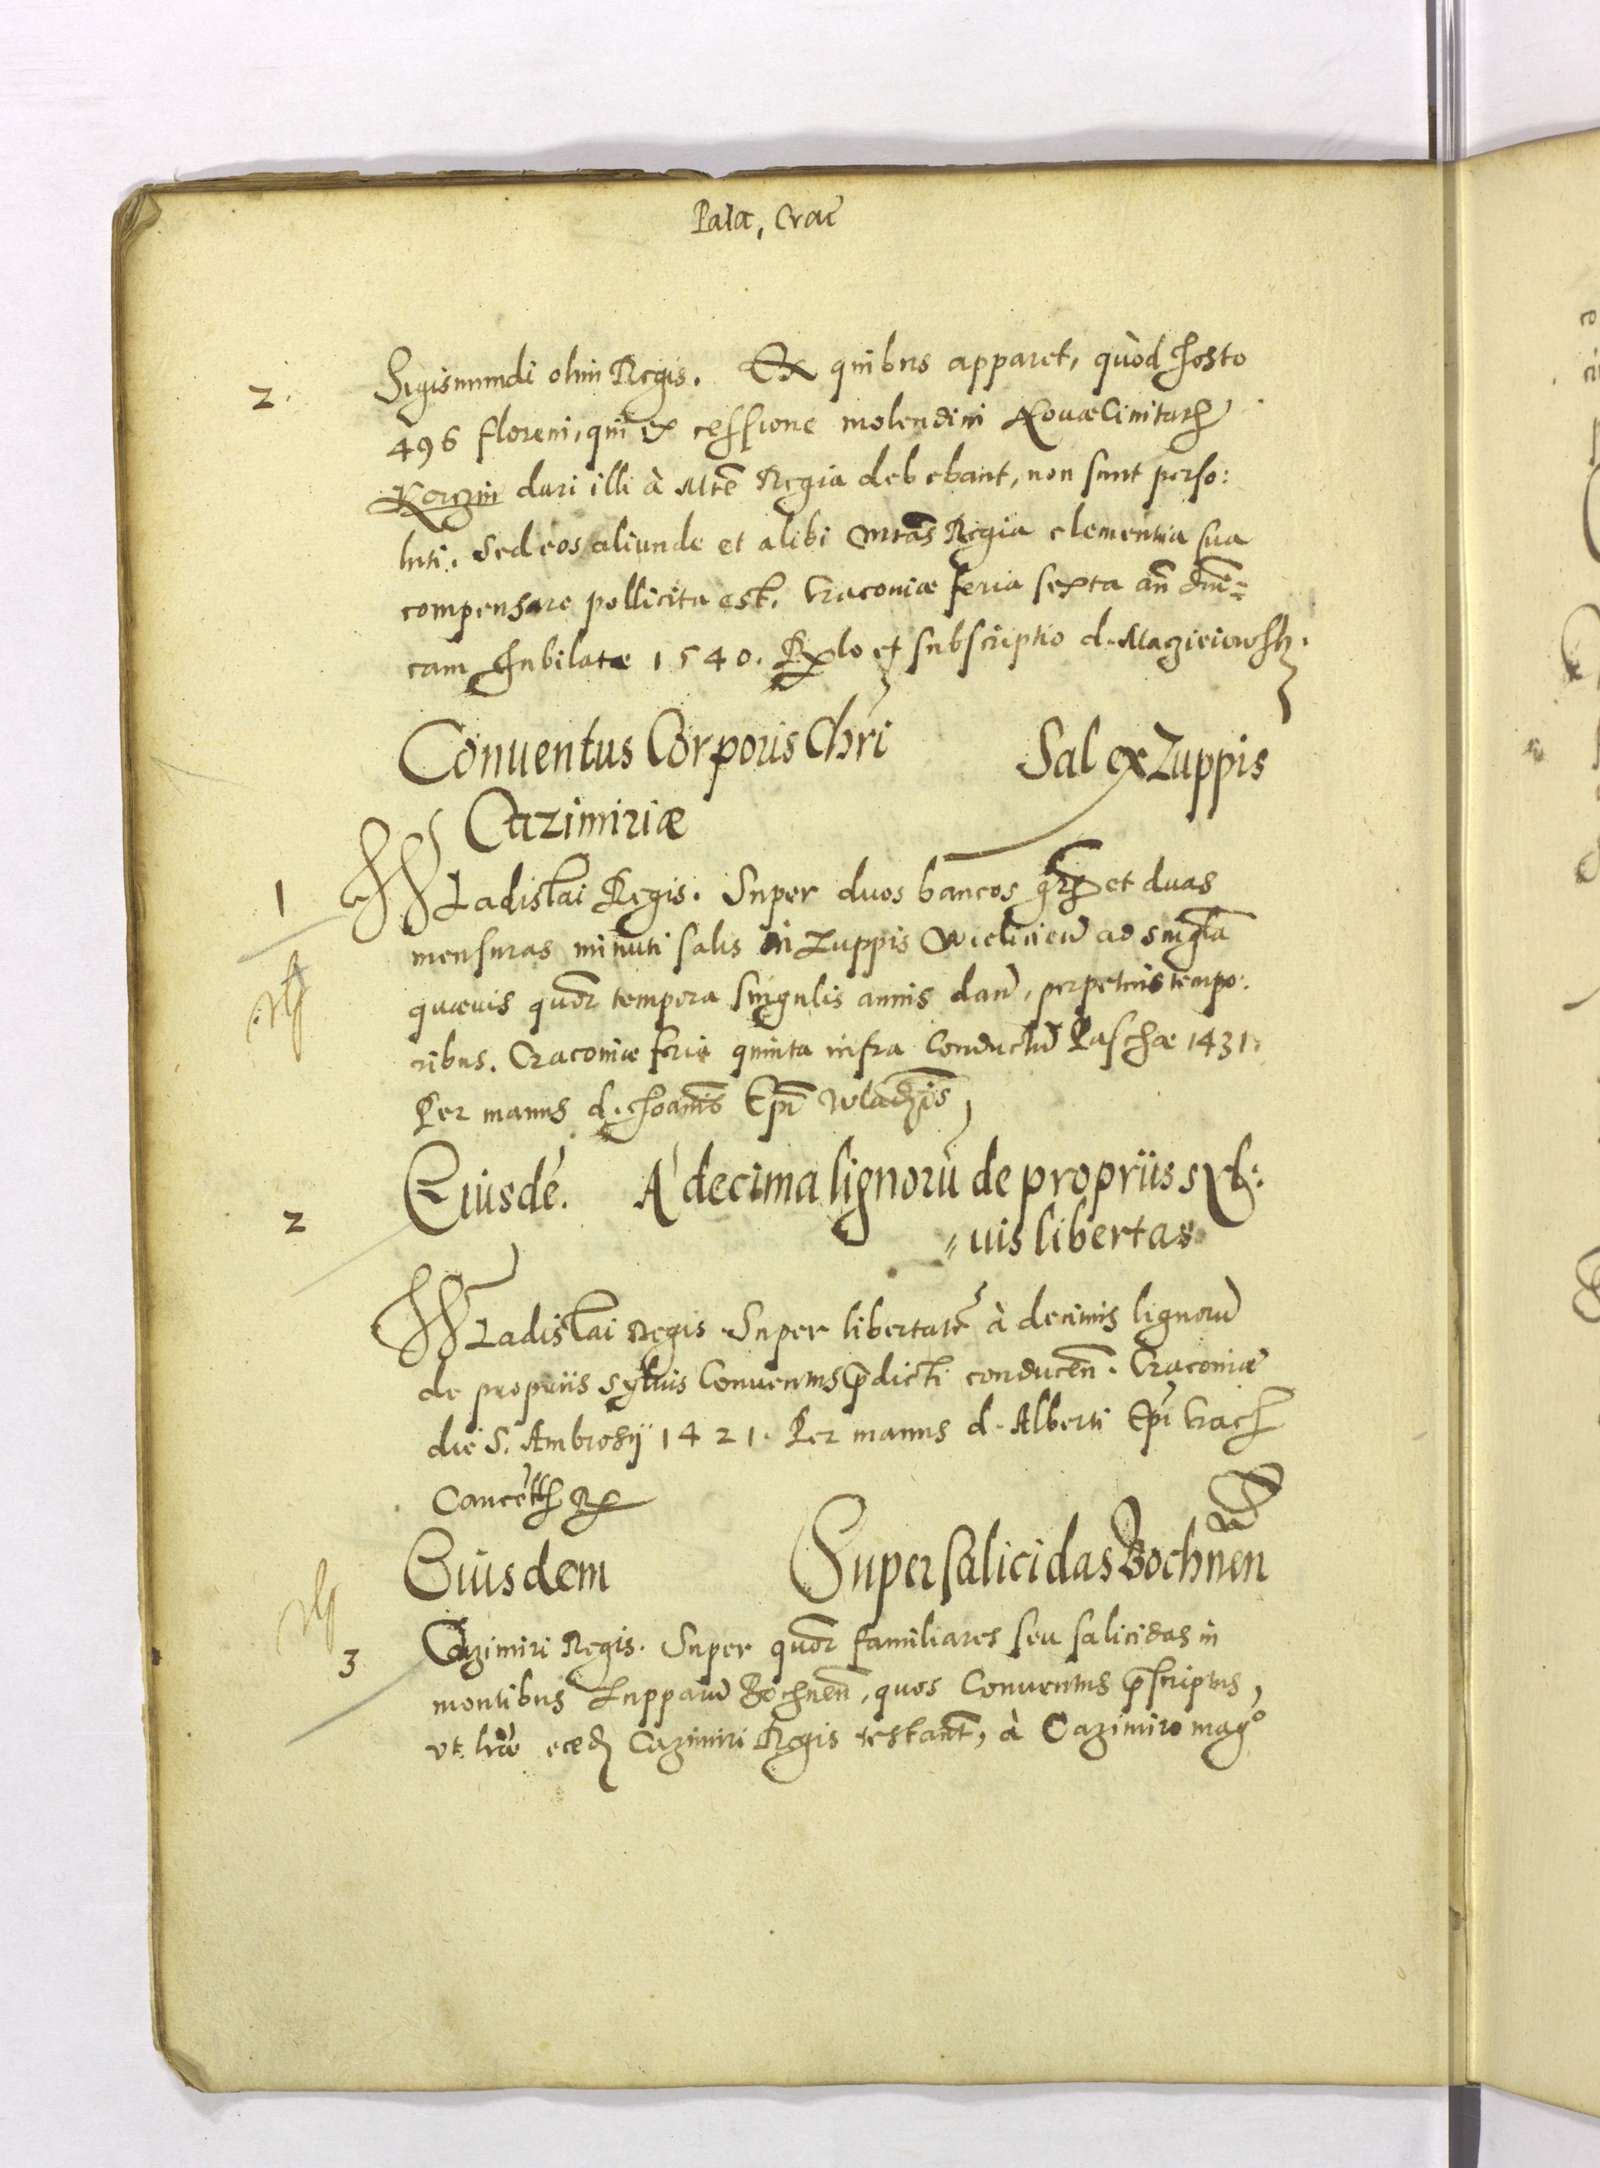 Pala, Crac̄
2. Sigismundi olim Regis. Ex quibus apparet, quòd hosto
496 floreni, qui ex cessione molendini NovæCivitatẽ
Korczin dari illi à Mte Regia debebant, non sunt perso:
luti. Sed eos aliunde et alibi Mtas Regia clementia sua
compensare pollicita est. Cracoviæ feria sexta añ dni=
cam Jubilatæ 1540. Rlo et subscriptio d. Maczieiowsk.
Conuentus Corporis Chri Sal ex Zuppis
Cazimiriæ
1 WLadislai Regis. Super duos bancos et duas
mensuras minuti salis in Zuppis Wieliciem̄ ad singla
quævis quor tempora singulis annis dan̄, perpetuis tempo:
ribus. Cracoviæ feria quinta infra Conductū Paschæ 1431.
Per manus d. Joanis Epi Wladis
2 Eiusdē. A decima lignorū de propriis syl:
"uis libertas
WLadislai Regis Super libertatē à decimis lignorū
de propriis sylvis Conventus p̄dicti conducen̄. Cracoviæ
die S. Ambrosij 1421. Per manus d. Alberti Epi Crac
Cancell R
Eiusdem Super salicidas Bochnen
3 Cazimiri Regis. Super quor familiares seu salicidas in
montibus Zupparū Bochnen̄, quos Conventus p̄scriptus,
vt lræ eæd Cazimiri Regis testant̄, à Cazimiro magº